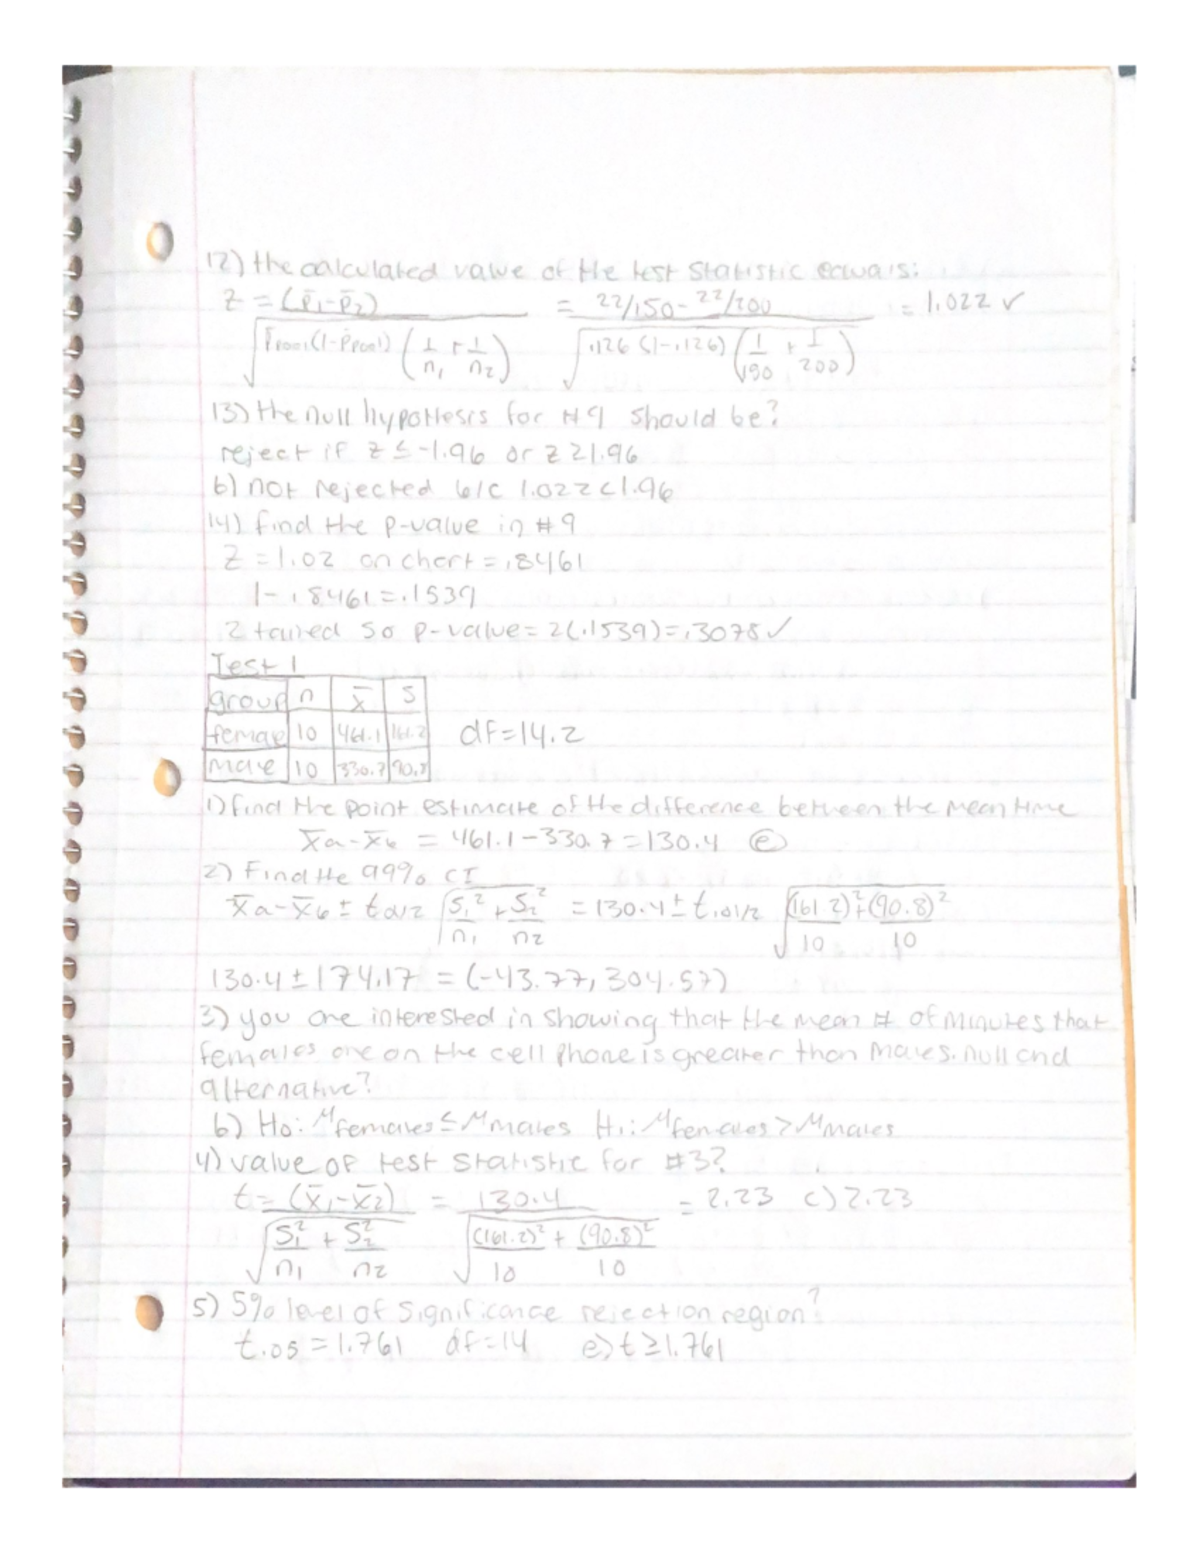 12) the calculated value of the test statistic equals:
z = (p̄₁-p̄₂) / √(p̄pool(1-p̄pool)(1/n₁ + 1/n₂)) = 22/150 - 22/200 / √(.126(1-.126)(1/150 + 1/200)) = 1.022 ✓
13) the null hypothesis for #9 should be?
reject if z ≤ -1.96 or z ≥ 1.96
b) not rejected b/c 1.022 < 1.96
14) find the p-value in #9
Z = 1.02 on chart = .8461
1 - .8461 = .1539
2 tailed so p-value = 2(.1539) = .3078 ✓
Test 1
group n x̄ s
female 10 461.1 161.2 df=14.2
male 10 330.7 90.8
1) find the point estimate of the difference between the mean time
x̄a - x̄b = 461.1 - 330.7 = 130.4 (e)
2) Find the 99% CI
x̄a - x̄b ± tα/2 √(S₁²/n₁ + S₂²/n₂) = 130.4 ± t.01/2 √((161.2)²/10 + (90.8)²/10)
130.4 ± 174.17 = (-43.77, 304.57)
3) you are interested in showing that the mean # of minutes that
females are on the cell phone is greater than males. null and
alternative?
b) Ho: μfemales ≤ μmales H₁: μfemales > μmales
4) value of test statistic for #3?
t = (x̄₁-x̄₂) / √(S₁²/n₁ + S₂²/n₂) = 130.4 / √((161.2)²/10 + (90.8)²/10) = 2.23 c) 2.23
5) 5% level of significance rejection region?
t.05 = 1.761 df=14 e) t ≥ 1.761